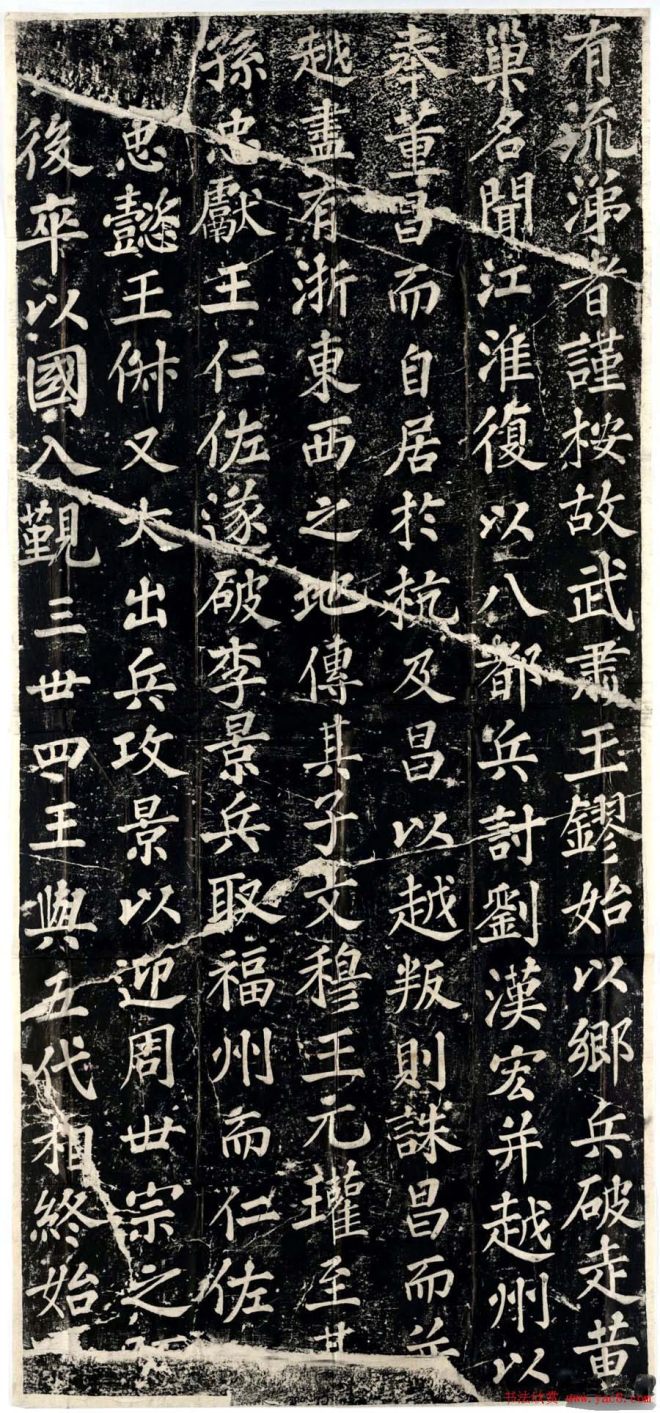 有流涕者謹桉故武肅王鏐始以鄉兵破走黄
巢名聞江淮復以八都兵討劉漢宏并越州以
奉董昌而自居於杭及昌以越叛則誅昌而并
越盡有浙東西之地傳其子文穆王元瓘至其
孫忠獻王仁佐遂破李景兵取福州而仁佐
忠懿王俶又大出兵攻景以迎周世宗之
後卒以國入覲三世四王與五代相終始
书法欣赏 www.yac8.com